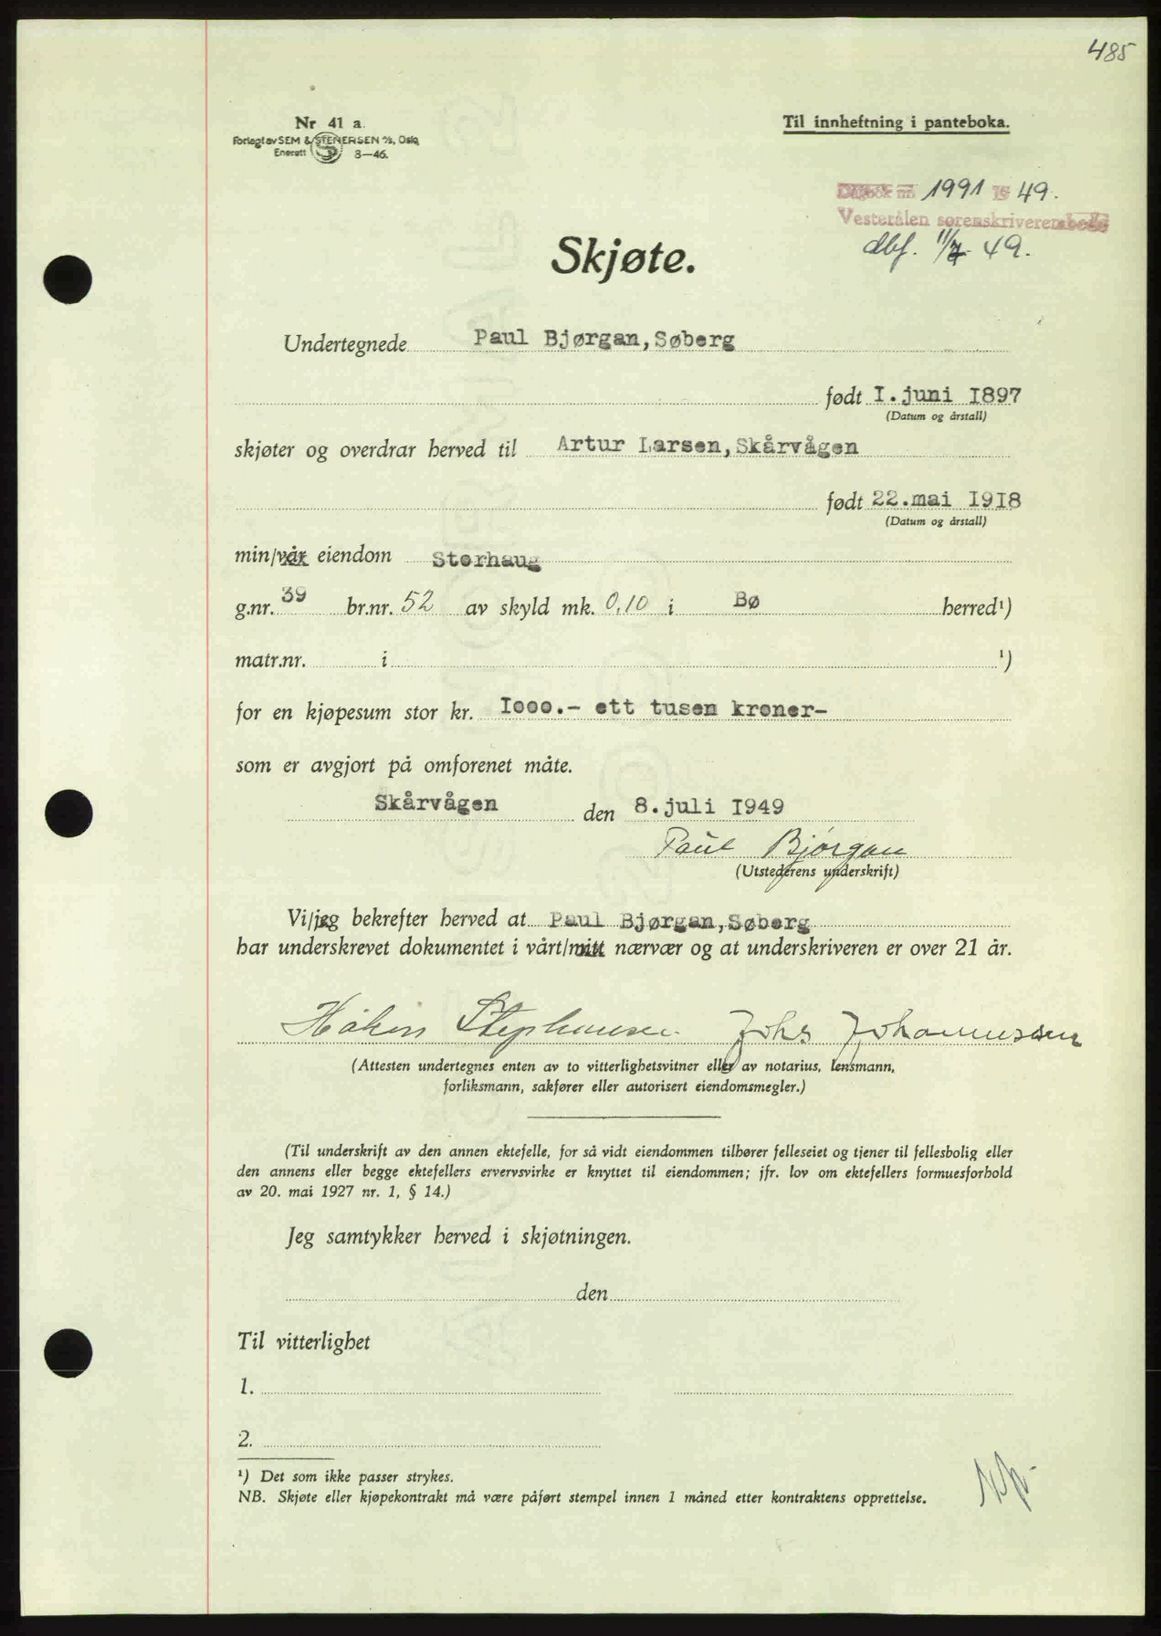 485
Nr 41 a.
Forlagt av SEM & STENERSEN A/S, Oslo
Enerett 8—46.
Til innheftning i panteboka.
Dagbok nr 1991 19 49.
Vesterålen sorenskriverembede
dbf. 11/7 49.
Skjøte.
Undertegnede Paul Bjørgan, Søberg
født I. juni I897
(Datum og årstall)
skjøter og overdrar herved til Artur Larsen, Skårvågen
født 22. mai I9I8
(Datum og årstall)
min/vår eiendom Storhaug
g.nr. 39 br.nr. 52 av skyld mk. 0,10 i Bø herred¹)
matr.nr. i ¹)
for en kjøpesum stor kr. Iooo.- ett tusen kroner-
som er avgjort på omforenet måte.
Skårvågen den 8. juli I949
Paul Bjørgan
(Utstederens underskrift)
Vi/jeg bekrefter herved at Paul Bjørgan, Søberg
har underskrevet dokumentet i vårt/mitt nærvær og at underskriveren er over 21 år.
Håkon Stephansen Johs Johannessen
(Attesten undertegnes enten av to vitterlighetsvitner eller av notarius, lensmann,
forliksmann, sakfører eller autorisert eiendomsmegler.)
(Til underskrift av den annen ektefelle, for så vidt eiendommen tilhører felleseiet og tjener til fellesbolig eller
den annens eller begge ektefellers ervervsvirke er knyttet til eiendommen; jfr. lov om ektefellers formuesforhold
av 20. mai 1927 nr. 1, § 14.)
Jeg samtykker herved i skjøtningen.
den
Til vitterlighet
1.
2.
¹) Det som ikke passer strykes.
NB. Skjøte eller kjøpekontrakt må være påført stempel innen 1 måned etter kontraktens opprettelse.